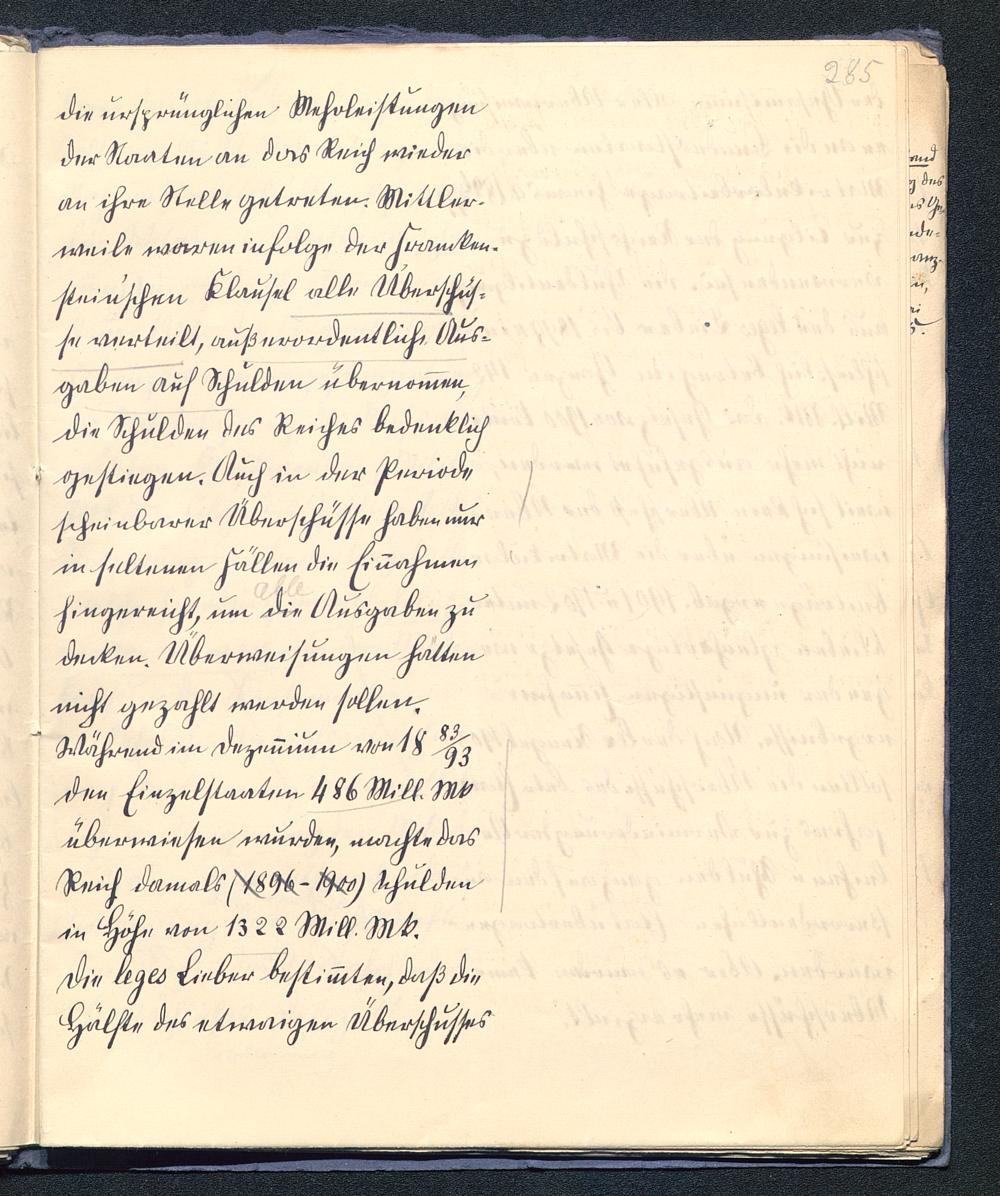 285
die ursprünglichen Mehrleistungen
der Staaten an das Reich wieder
an ihre Stelle getreten. Mittler-
weile waren infolge der Francken-
stein'schen Klausel alle Überschüs-
se verteilt, außerordentliche Aus-
gaben auf Schulden übernom̄en,
die Schulden des Reiches bedenklich
gestiegen. Auch in der Periode
scheinbarer Überschüsse haben nur
in seltenen Fällen die Ein̄ahmen
alle
hingereicht, um die Ausgaben zu
decken. Überweisungen hätten
nicht gezahlt werden sollen.
Während im Dezen̄ium von 18 83/93
den Einzelstaaten 486 Mill. Mk
überwiesen wurden, machte das
Reich damals (1896-1900) Schulden
in Höhe von 1322 Mill. Mk.
Die leges Lieber bestim̄ten, daß die
Hälfte des etwaigen Überschusses